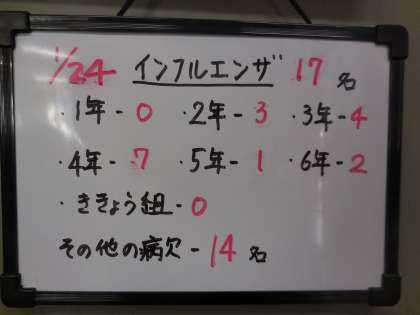 1/24 インフルエンザ 17名
・1年-0 ・2年-3 ・3年-4
・4年-7 ・5年-1 ・6年-2
・ききょう組-0
その他の病欠-14名